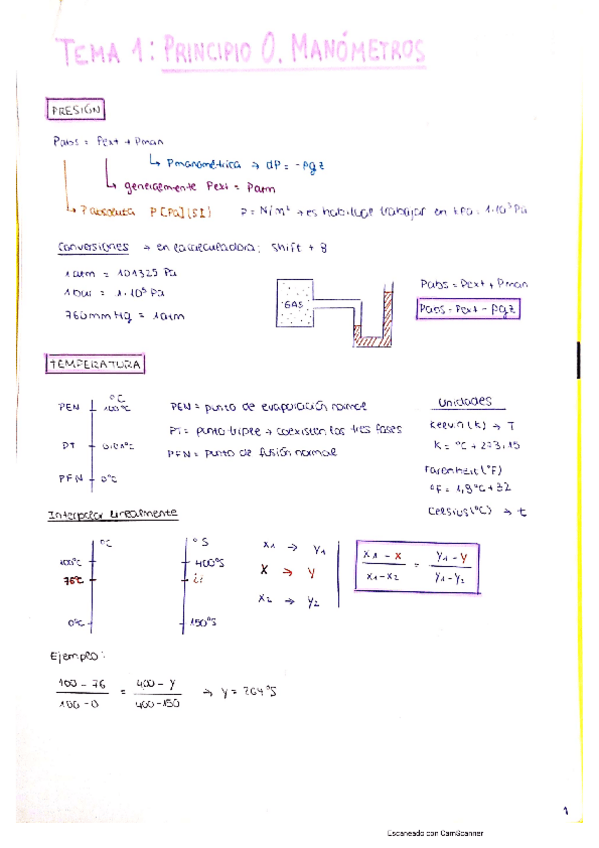 TEMA 1: PRINCIPIO 0. MANÓMETROS
PRESIÓN
Pabs = Pext + Pman
↳ Pmanométrica → dP = -ρgz
↳ generalmente Pext = Patm
↳ Pabsoluta P [Pa] (SI) P = N/m² → es habitual trabajar en kPa: 1·10³ Pa
Conversiones → en la calculadora: Shift + 8
1 atm = 101325 Pa
1 bar = 1·10⁵ Pa
760 mm Hg = 1 atm
GAS
Pabs = Pext + Pman
Pabs = Pext - ρgz
TEMPERATURA
°C
PEN 100°C
PT 0,01°C
PFN 0°C
PEN = punto de evaporación normal
PT = punto triple → coexisten las tres fases
PFN = punto de fusión normal
Unidades
Kelvin (K) → T
K = °C + 273,15
Farenheit (°F)
°F = 1,8°C + 32
Celsius (°C) → t
Interpolar linealmente
°C
100°C
76°C
0°C
°S
400°S
¿?
150°S
x₁ → y₁
x → y
x₂ → y₂
x₁ - x / x₁ - x₂ = y₁ - y / y₁ - y₂
Ejemplo:
100 - 76 / 100 - 0 = 400 - y / 400 - 150 → y = 264°S
1
Escaneado con CamScanner